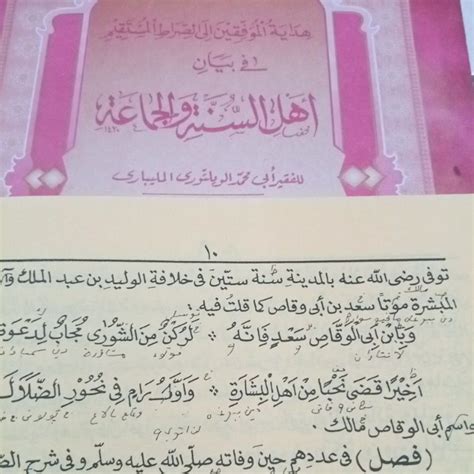 هداية الموفقين إلى الصراط المستقيم
في بيان
أهل السنة والجماعة
للفقير أبي محمد الويلتوري المليباري
١٠
توفى رضى الله عنه بالمدينة سنة ستين فى خلافة الوليد بن عبد الملك وآخر
المبشرة موتا سعد بن أبى وقاص كما قلت فيه:
وبابن أبى الوقاص سعد فإنه ؞ لركن من الشورى مجاب لدعوة
أخيرا قضى نحبا من أهل البشارة ؞ وأول رام فى نحور الضلالة
واسم أبى الوقاص مالك.
(فصل) فى عددهم حين وفاته صلى الله عليه وسلم وفى شرح الص